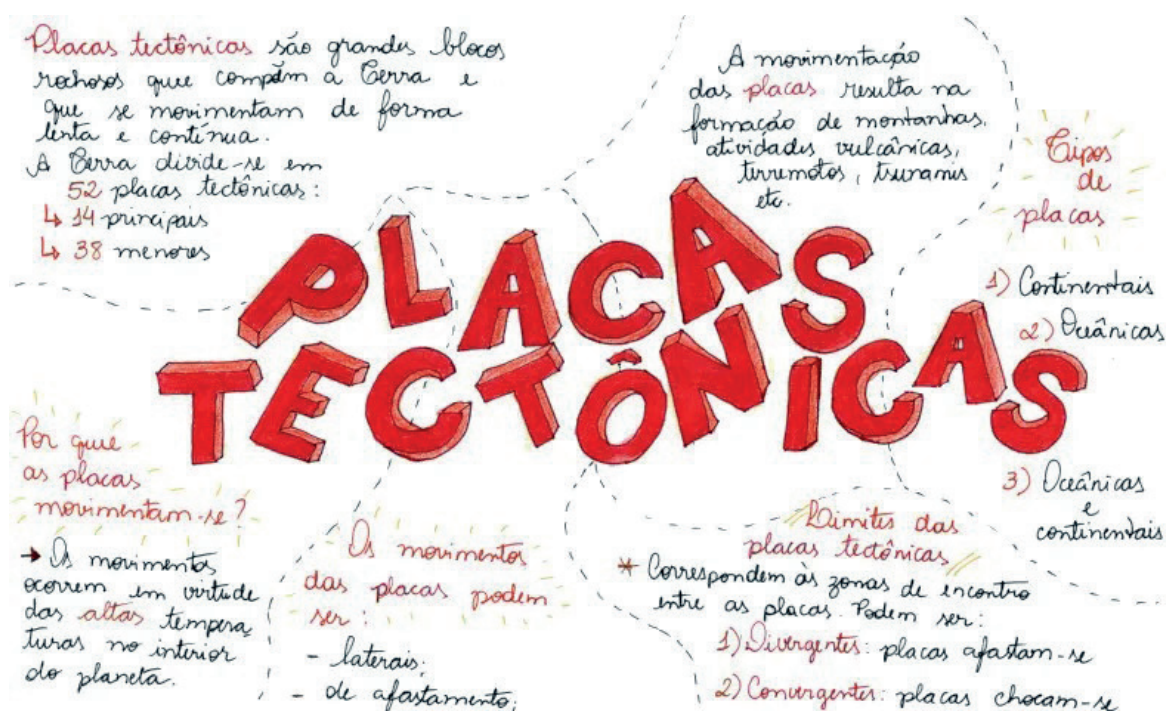 Placas tectônicas são grandes blocos
rochosos que compõem a Terra e
que se movimentam de forma
lenta e contínua.
A Terra divide-se em
52 placas tectônicas:
↳ 14 principais
↳ 38 menores
A movimentação
das placas resulta na
formação de montanhas,
atividades vulcânicas,
terremotos, tsunamis
etc.
Tipos
de
placas
1) Continentais
2) Oceânicas
3) Oceânicas
e
continentais
PLACAS
TECTÔNICAS
Por que
as placas
movimentam-se?
→ Os movimentos
ocorrem em virtude
das altas tempera
turas no interior
do planeta.
Os movimentos
das placas podem
ser:
- laterais;
- de afastamento;
Limites das
placas tectônicas
* Correspondem às zonas de encontro
entre as placas. Podem ser:
1) Divergentes: placas afastam-se
2) Convergentes: placas chocam-se